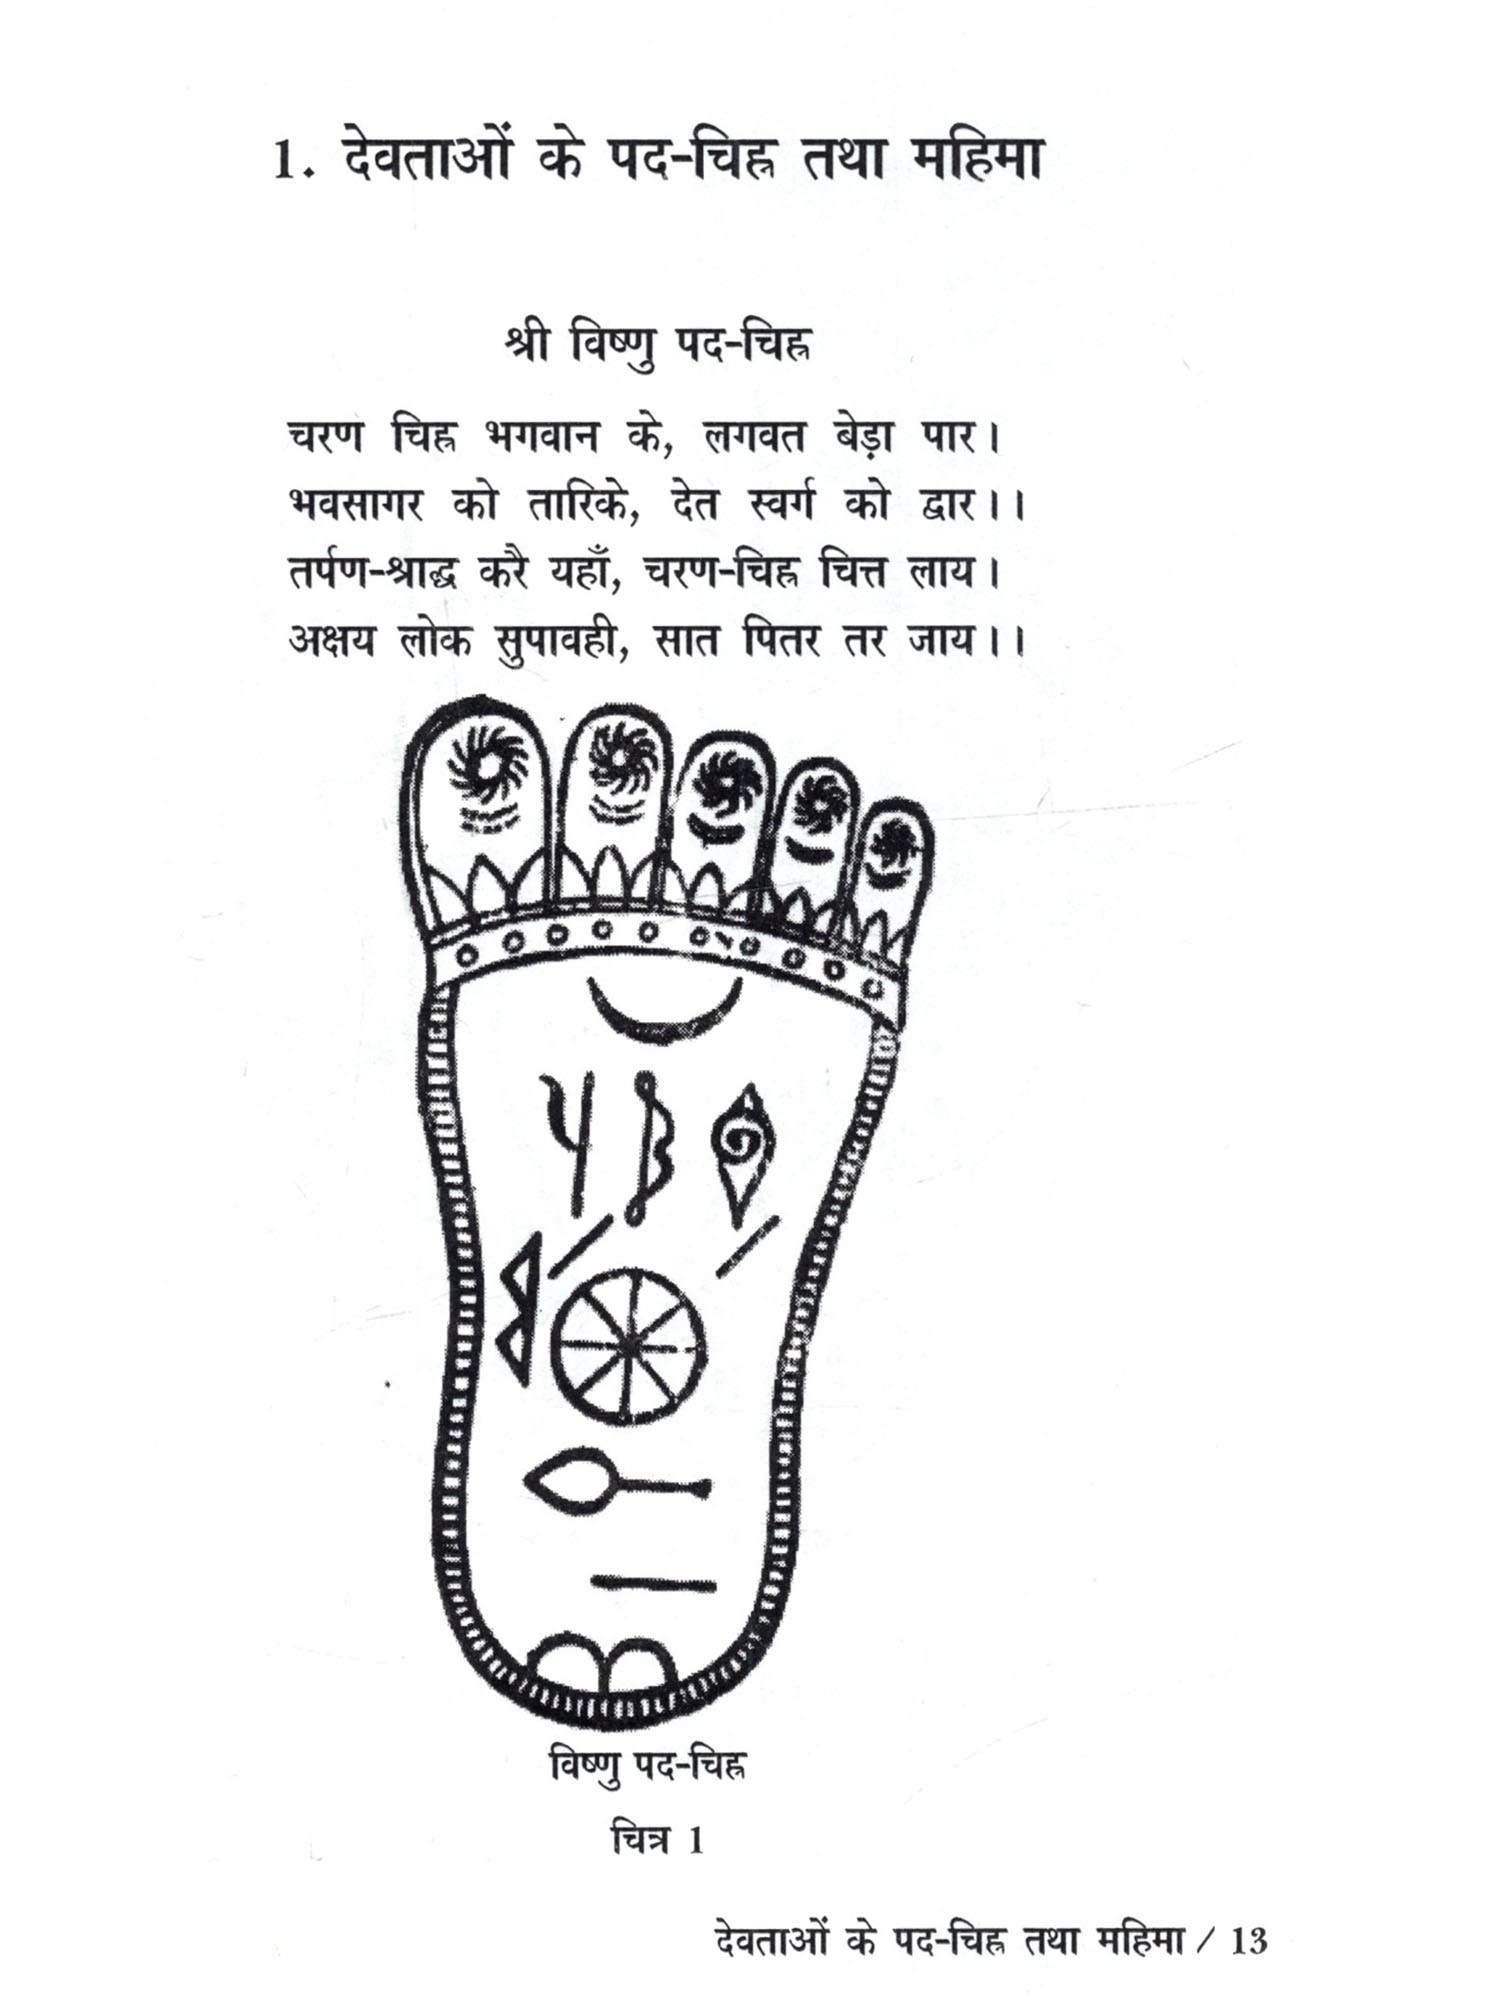 1. देवताओं के पद-चिह्न तथा महिमा
श्री विष्णु पद-चिह्न
चरण चिह्न भगवान के, लगवत बेड़ा पार।
भवसागर को तारिके, देत स्वर्ग को द्वार।।
तर्पण-श्राद्ध करै यहाँ, चरण-चिह्न चित्त लाय।
अक्षय लोक सुपावही, सात पितर तर जाय।।
विष्णु पद-चिह्न
चित्र 1
देवताओं के पद-चिह्न तथा महिमा / 13